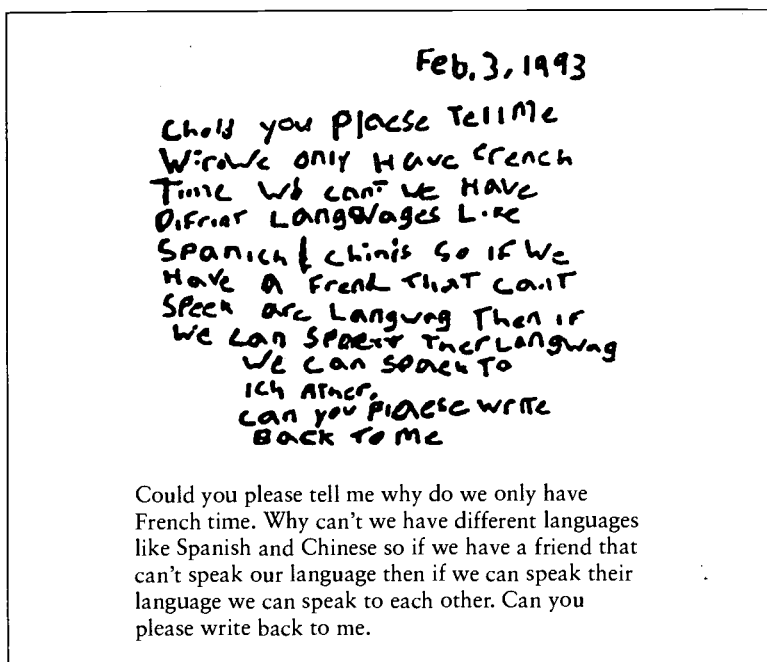 Feb. 3, 1993
Chold you Plaese Tell Me
WiroWe only Have French
Time Wb can't we Have
Difrint Langwages Like
Spanich & chinis so if we
Have a Frend That can't
Speek are Langwag Then if
we can Spaek Ther Langwag
we can spaek To
ich ather.
can you Plaese write
Back To Me
Could you please tell me why do we only have
French time. Why can't we have different languages
like Spanish and Chinese so if we have a friend that
can't speak our language then if we can speak their
language we can speak to each other. Can you
please write back to me.